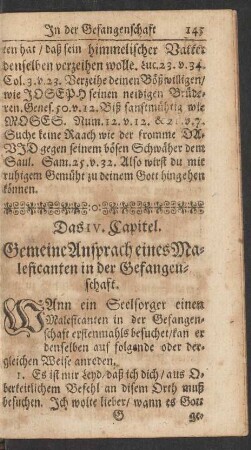 In der Gefangenschaft 145
ten hat / daß sein himmelischer Vatter
denselben verzeihen wolle. Luc. 23. v. 34.
Col. 3. v. 23. Verzeihe deinen Bößwilligen /
wie JOSEPH seinen neidigen Brüde-
ren. Genes. 50. v. 12. Biß sanfftmühtig wie
MOSES. Num. 12. v. 12. & 2: v. 7.
Suche keine Raach wie der fromme DA-
VID gegen seinem bösen Schwäher dem
Saul. Sam. 25. v. 32. Also wirst du mit
ruhigem Gemüht zu deinem Gott hingehen
können.
Das IV. Capitel.
Gemeine Ansprach eines Ma-
leficanten in der Gefangen-
schaft.
WAnn ein Seelsorger einen
Maleficanten in der Gefangen-
schafft erstenmahls besuchet / kan er
denselben auf folgende oder der-
gleichen Weise anreden.
1. Es ist mir Leyd / daß ich dich / aus O-
berkeitlichem Befehl an disem Orth muß
besuchen. Ich wolte lieber / wann es Gott
G ge-